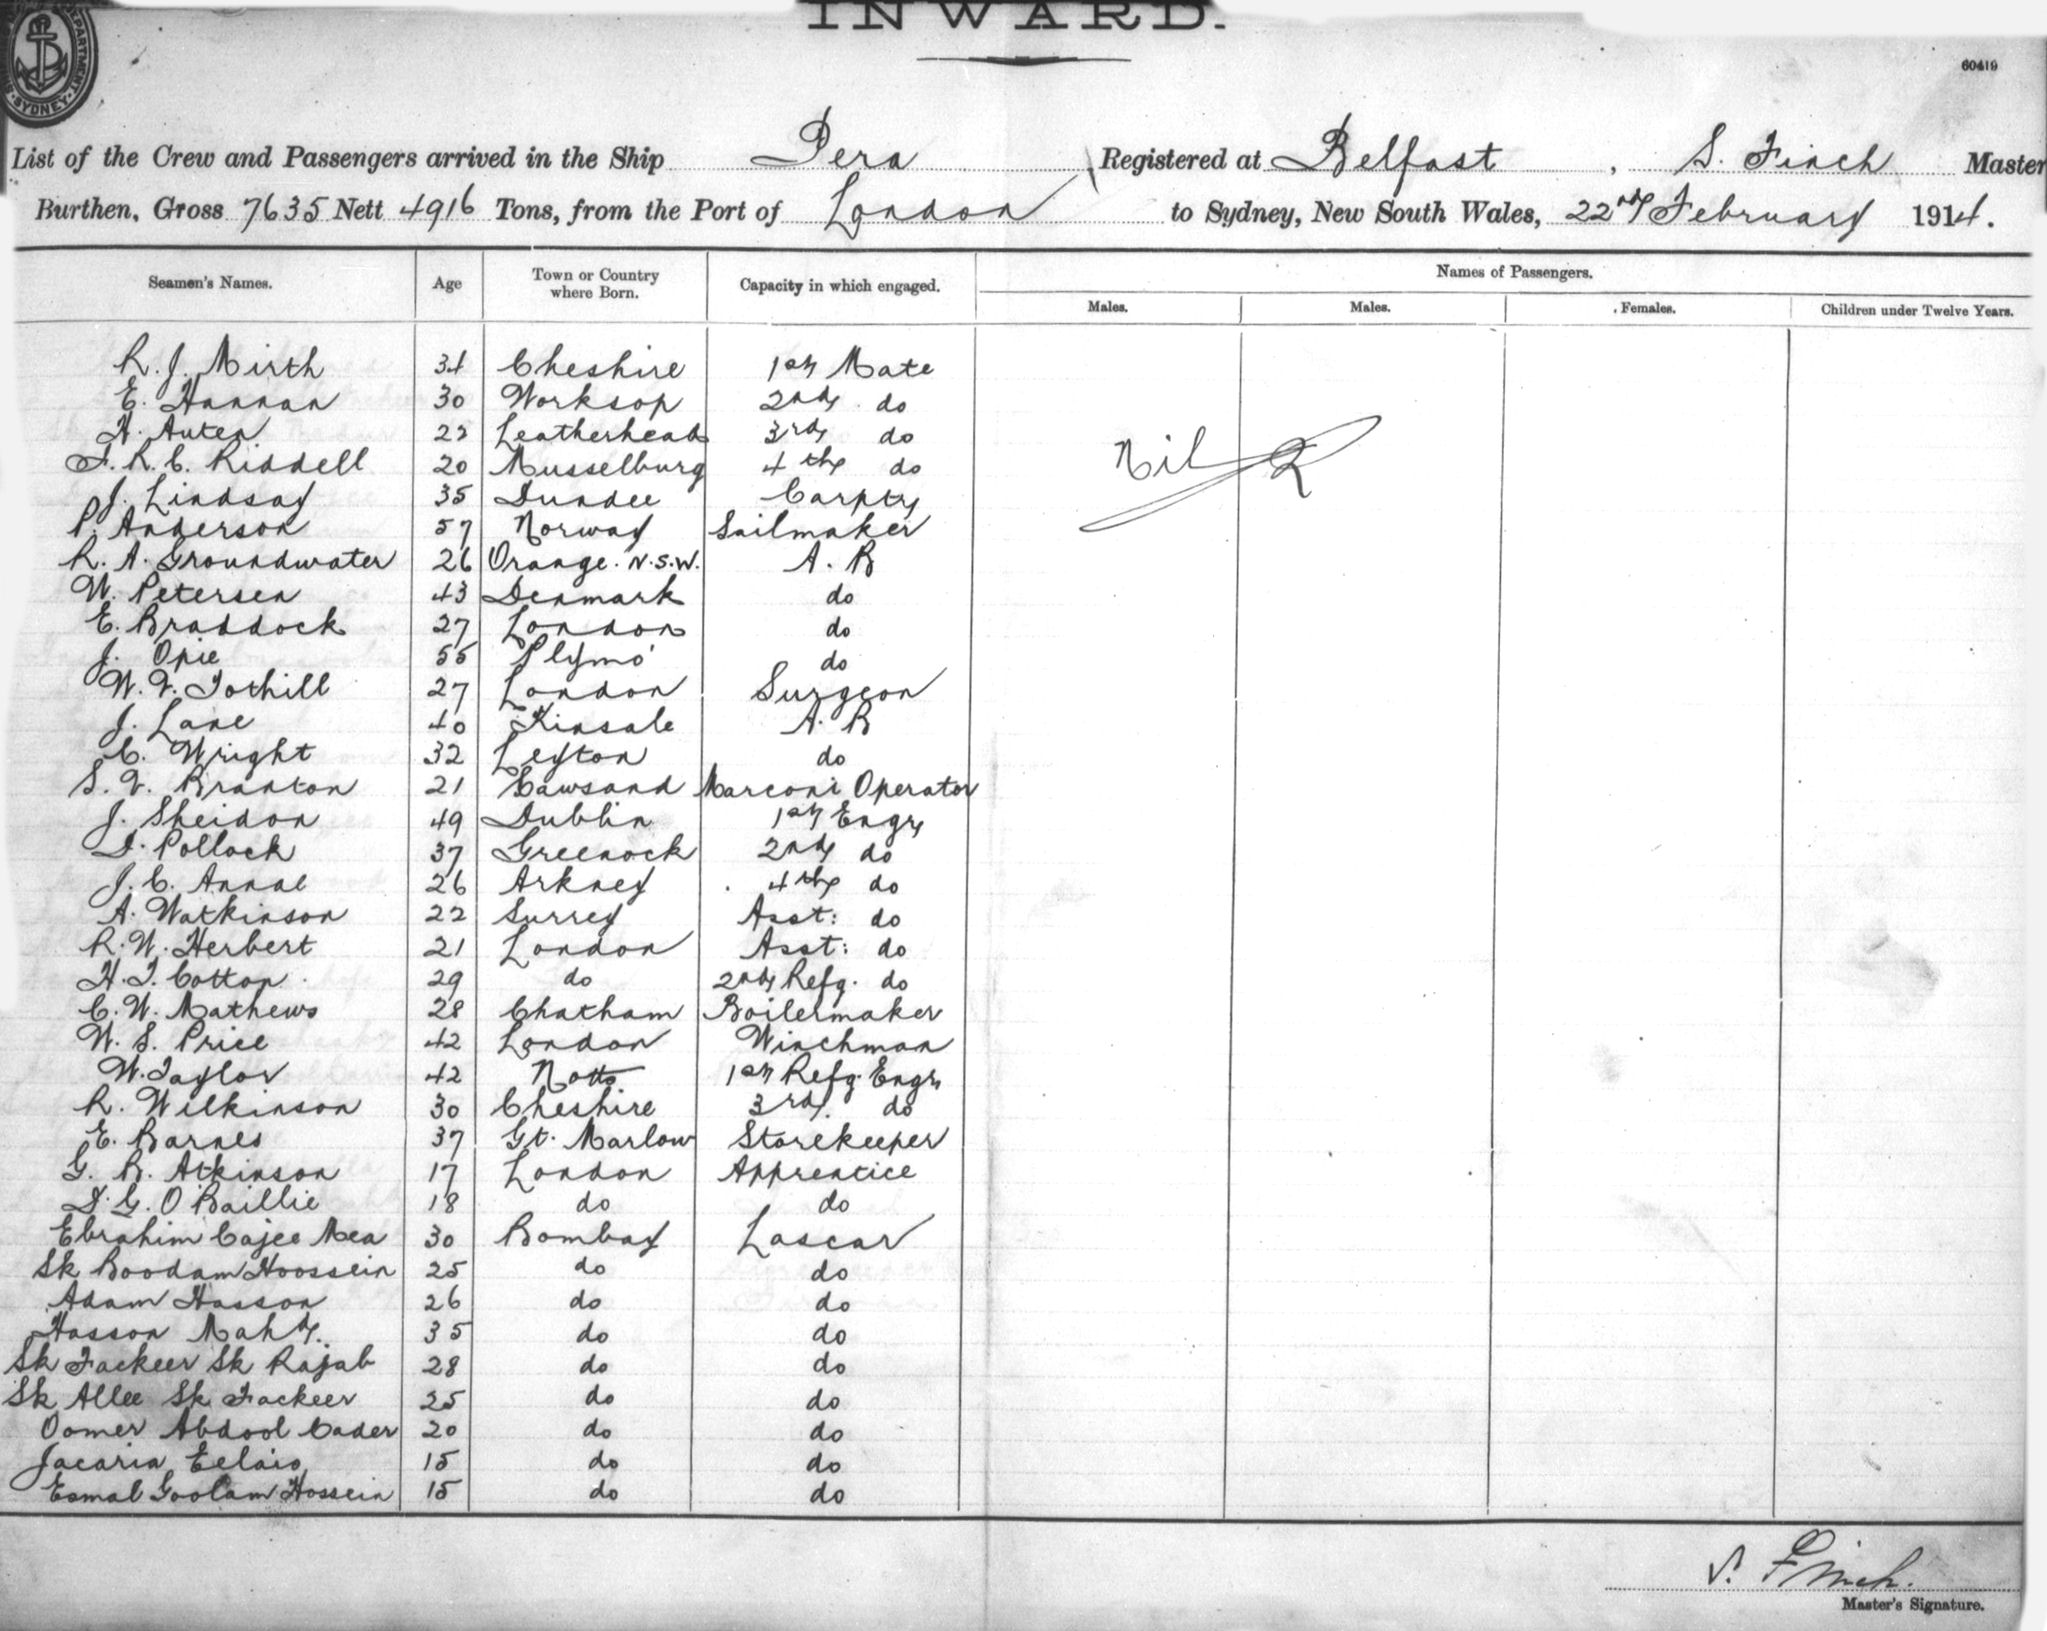 INWARD.
60419
SYDNEY
List of the Crew and Passengers arrived in the Ship Pera, Registered at Belfast, S. Finch Master
Burthen, Gross 7635 Nett 4916 Tons, from the Port of London to Sydney, New South Wales, 22nd February 1914.
Seamen's Names. Age Town or Country where Born. Capacity in which engaged. Names of Passengers.
Males. Males. Females. Children under Twelve Years.
R. J. Mirth 34 Cheshire 1st Mate
E. Hannan 30 Worksop 2nd do
H. Auten 22 Leatherhead 3rd do
F. R. C. Riddell 20 Musselburg 4th do
Nil
J. Lindsay 35 Dundee Carptr
P. Anderson 57 Norway Sailmaker
R. A. Groundwater 26 Orange. N.S.W. A. B
W. Petersen 43 Denmark do
E. Braddock 27 London do
J. Opie 55 Plymo' do
W. V. Tothill 27 London Surgeon
J. Lane 40 Kinsale A. B
C. Wright 32 Leyton do
S. V. Branton 21 Cawsand Marconi Operator
J. Sheidon 49 Dublin 1st Engr
D. Pollock 37 Greenock 2nd do
J. C. Annal 26 Arkney 4th do
A. Watkinson 22 Surrey Asst: do
R. W. Herbert 21 London Asst: do
H. T. Cotton 29 do 2nd Refg. do
C. W. Mathews 28 Chatham Boilermaker
W. S. Price 42 London Winchman
W. Taylor 42 Notts 1st Refg. Engr
R. Wilkinson 30 Cheshire 3rd. do
E. Barnes 37 Gt. Marlow Storekeeper
G. B. Atkinson 17 London Apprentice
D. G. O Baillie 18 do do
Ebrahim Cajee Mea 30 Bombay Lascar
Sk Boodam Hoossein 25 do do
Adam Hasson 26 do do
Hasson Mahd. 35 do do
Sk Fackeer Sk Rajab 28 do do
Sk Allee Sk Fackeer 25 do do
Oomer Abdool Cader 20 do do
Jacaria Eelais 15 do do
Esmal Goolam Hossein 15 do do
S. Finch.
Master's Signature.